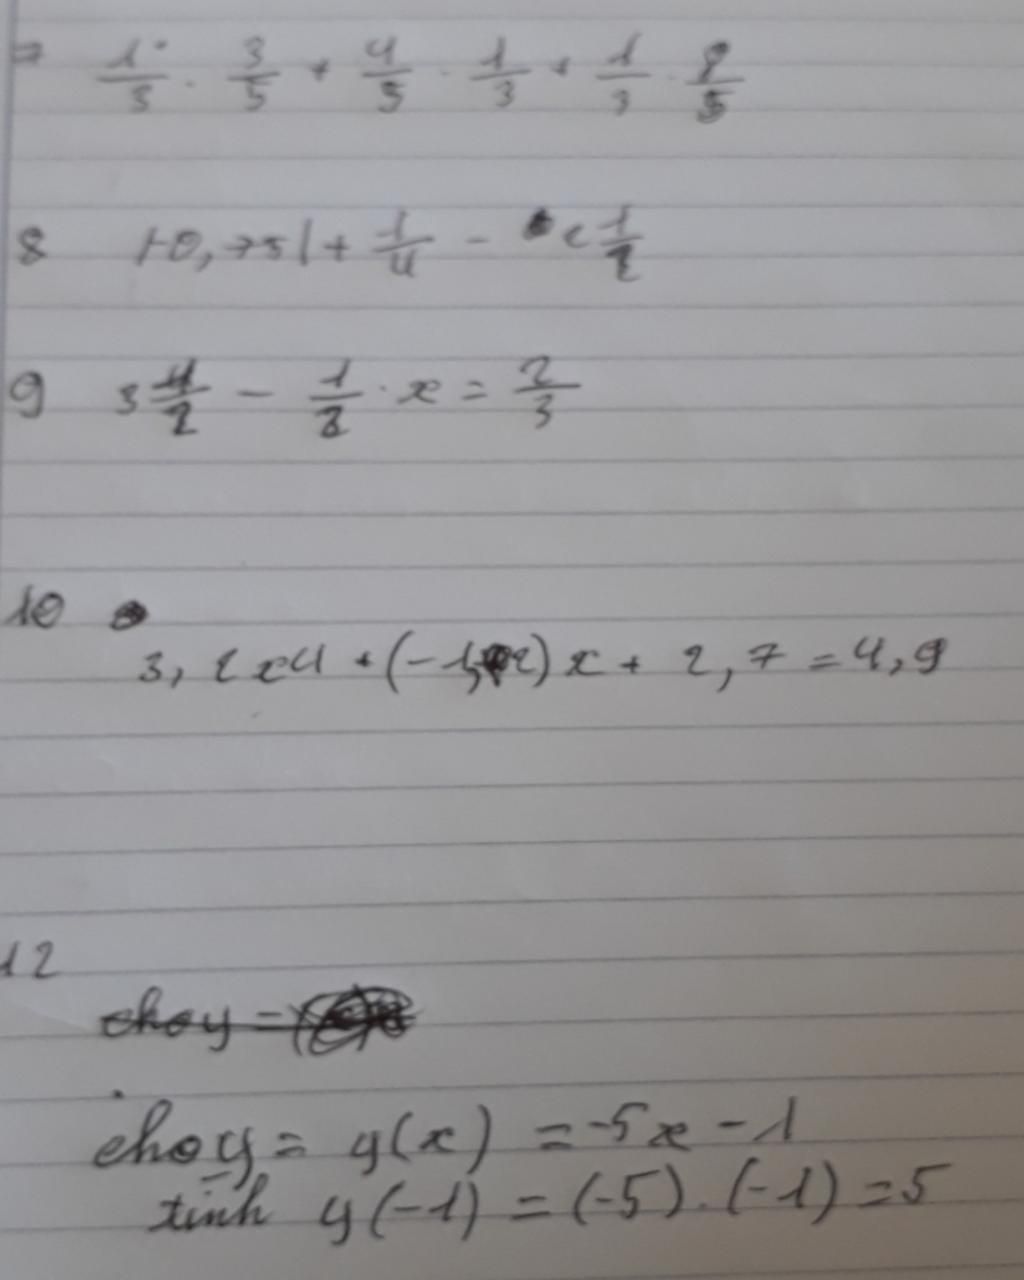 7 1/3 . 3/5 + 4/5 . 1/3 + 1/3 . 8/5
8 |-0,75| + 1/4 - 2 1/2
9 3 4/2 - 1/2 . x = 2/3
10
3,2x4 + (-1,2)x + 2,7 = 4,9
12
cho y = y(x) = -5x - 1
tính y(-1) = (-5).(-1) = 5